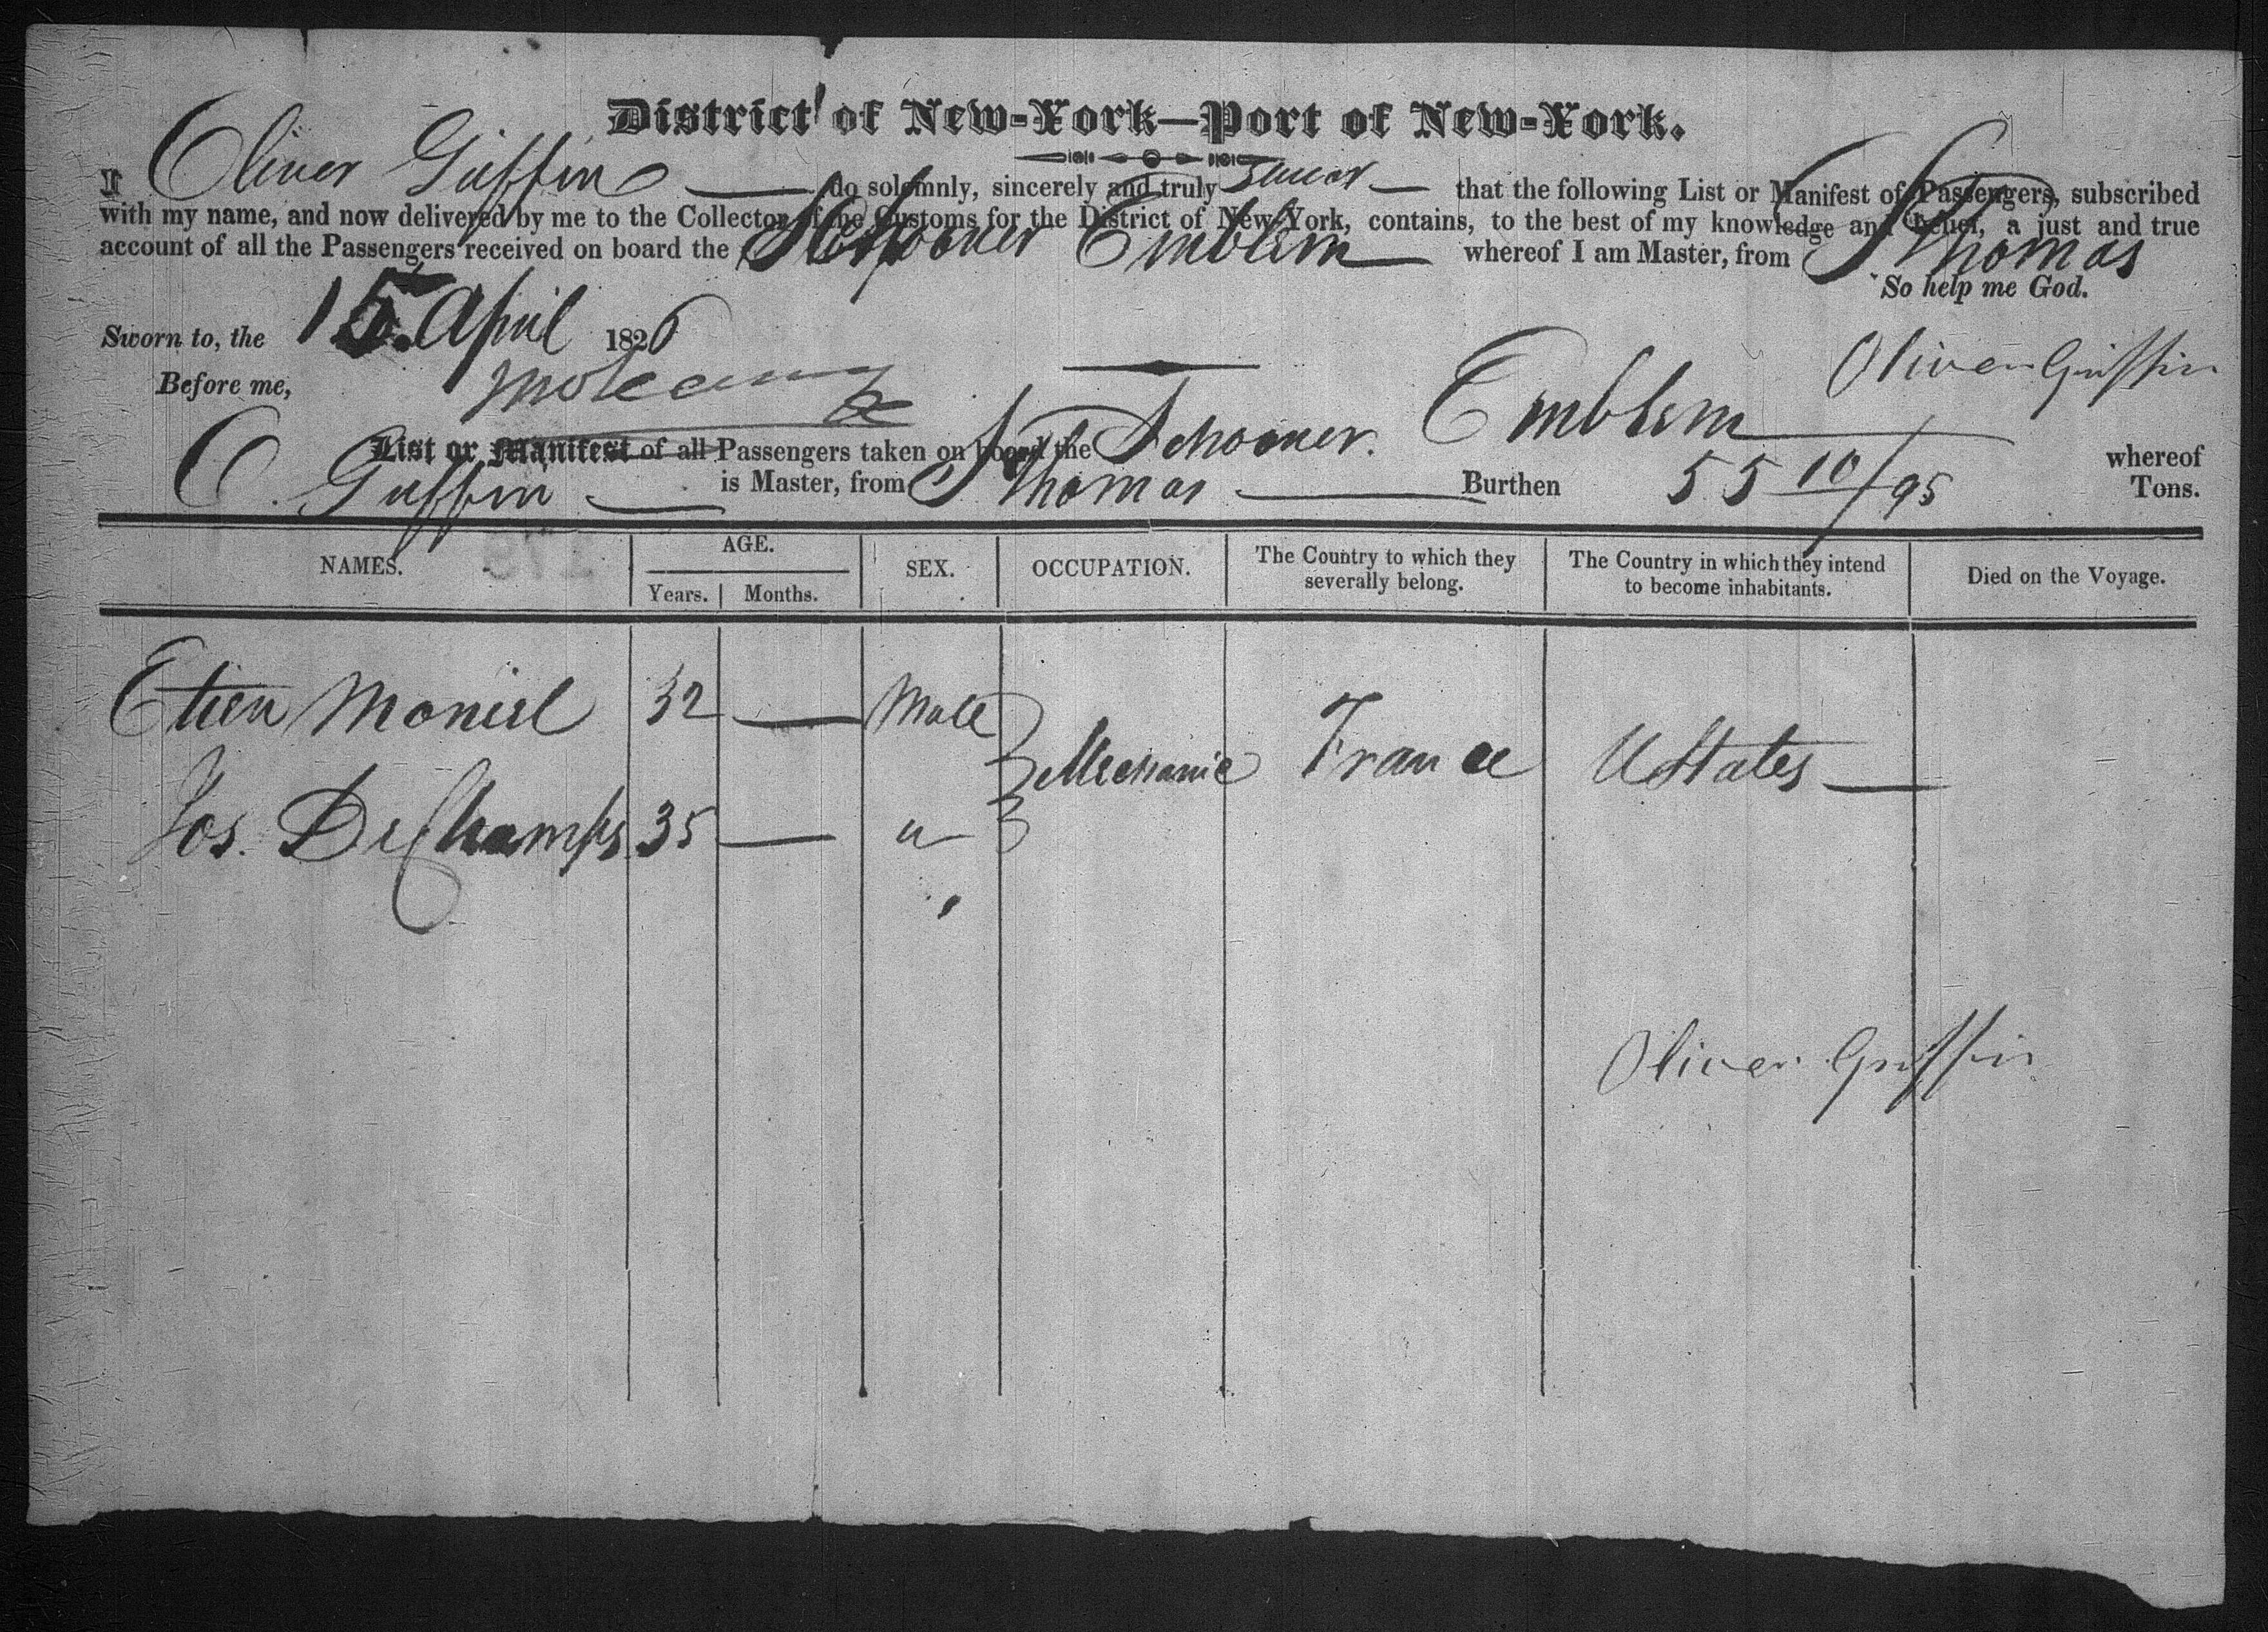 District of New-York—Port of New-York.
I Oliver Griffin do solemnly, sincerely and truly swear that the following List or Manifest of Passengers, subscribed
with my name, and now delivered by me to the Collector of the Customs for the District of New York, contains, to the best of my knowledge and belief, a just and true
account of all the Passengers received on board the Schooner Emblem whereof I am Master, from St Thomas
So help me God.
Sworn to, the 15 April 1826
Oliver Griffin
Before me,
List or Manifest of all Passengers taken on board the Schooner Emblem whereof
O. Griffin is Master, from St Thomas Burthen 55 10/95 Tons.
NAMES. AGE. Years. Months. SEX. OCCUPATION. The Country to which they severally belong. The Country in which they intend to become inhabitants. Died on the Voyage.
Etien Moniel 32 — Male
Mechanic France UStates —
Jos. DeChamps 35 — "
Oliver Griffin